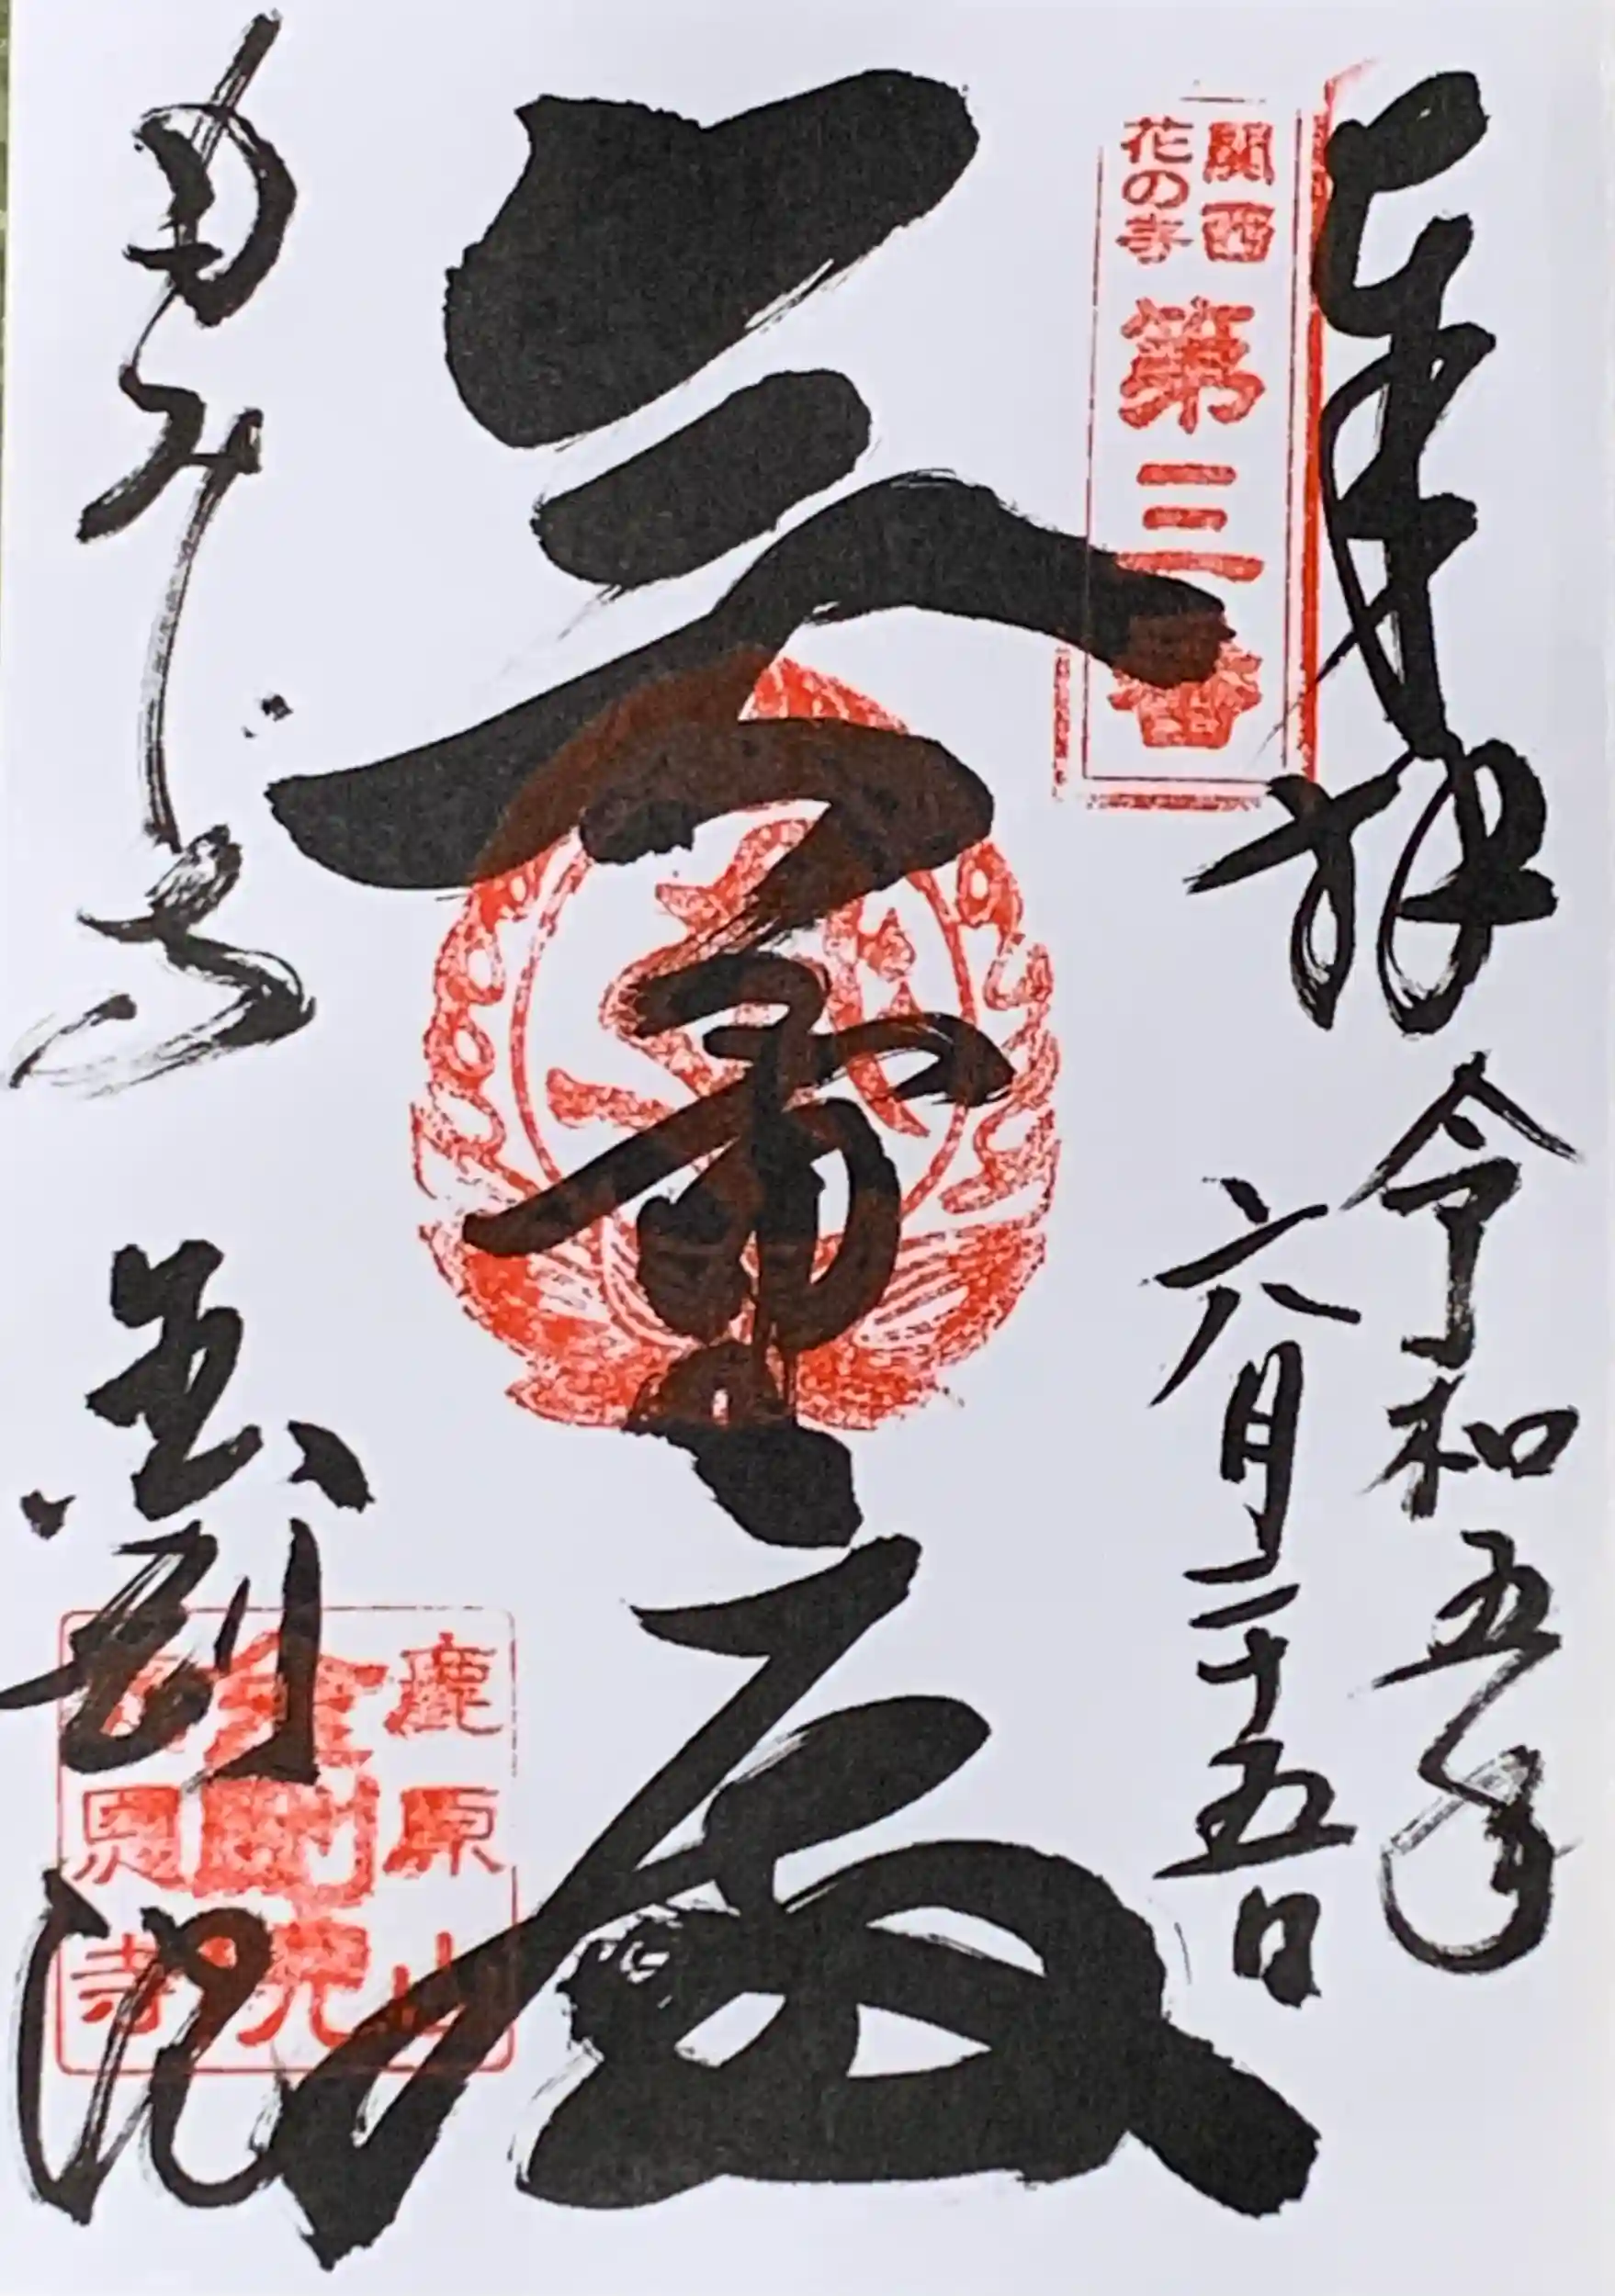 奉拝
令和五年
六月二十五日
關西
花の寺
第三番
もみじ寺
金剛院
鹿原山
金剛院
恩寺